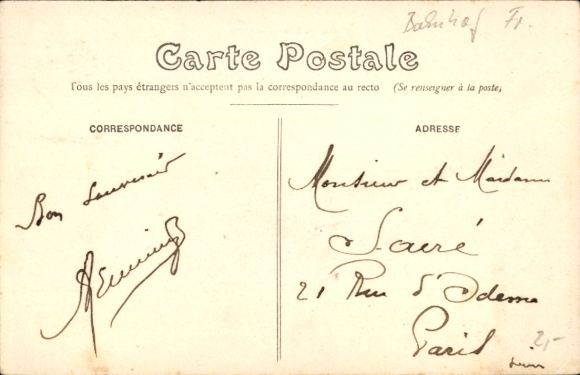 Bahnhof Fr.
Carte Postale
Tous les pays étrangers n'acceptent pas la correspondance au recto (Se renseigner à la poste)
CORRESPONDANCE
ADRESSE
Bon Souvenir
Monsieur et Madame
Sacré
21 Rue d'Odessa
Paris
2,-